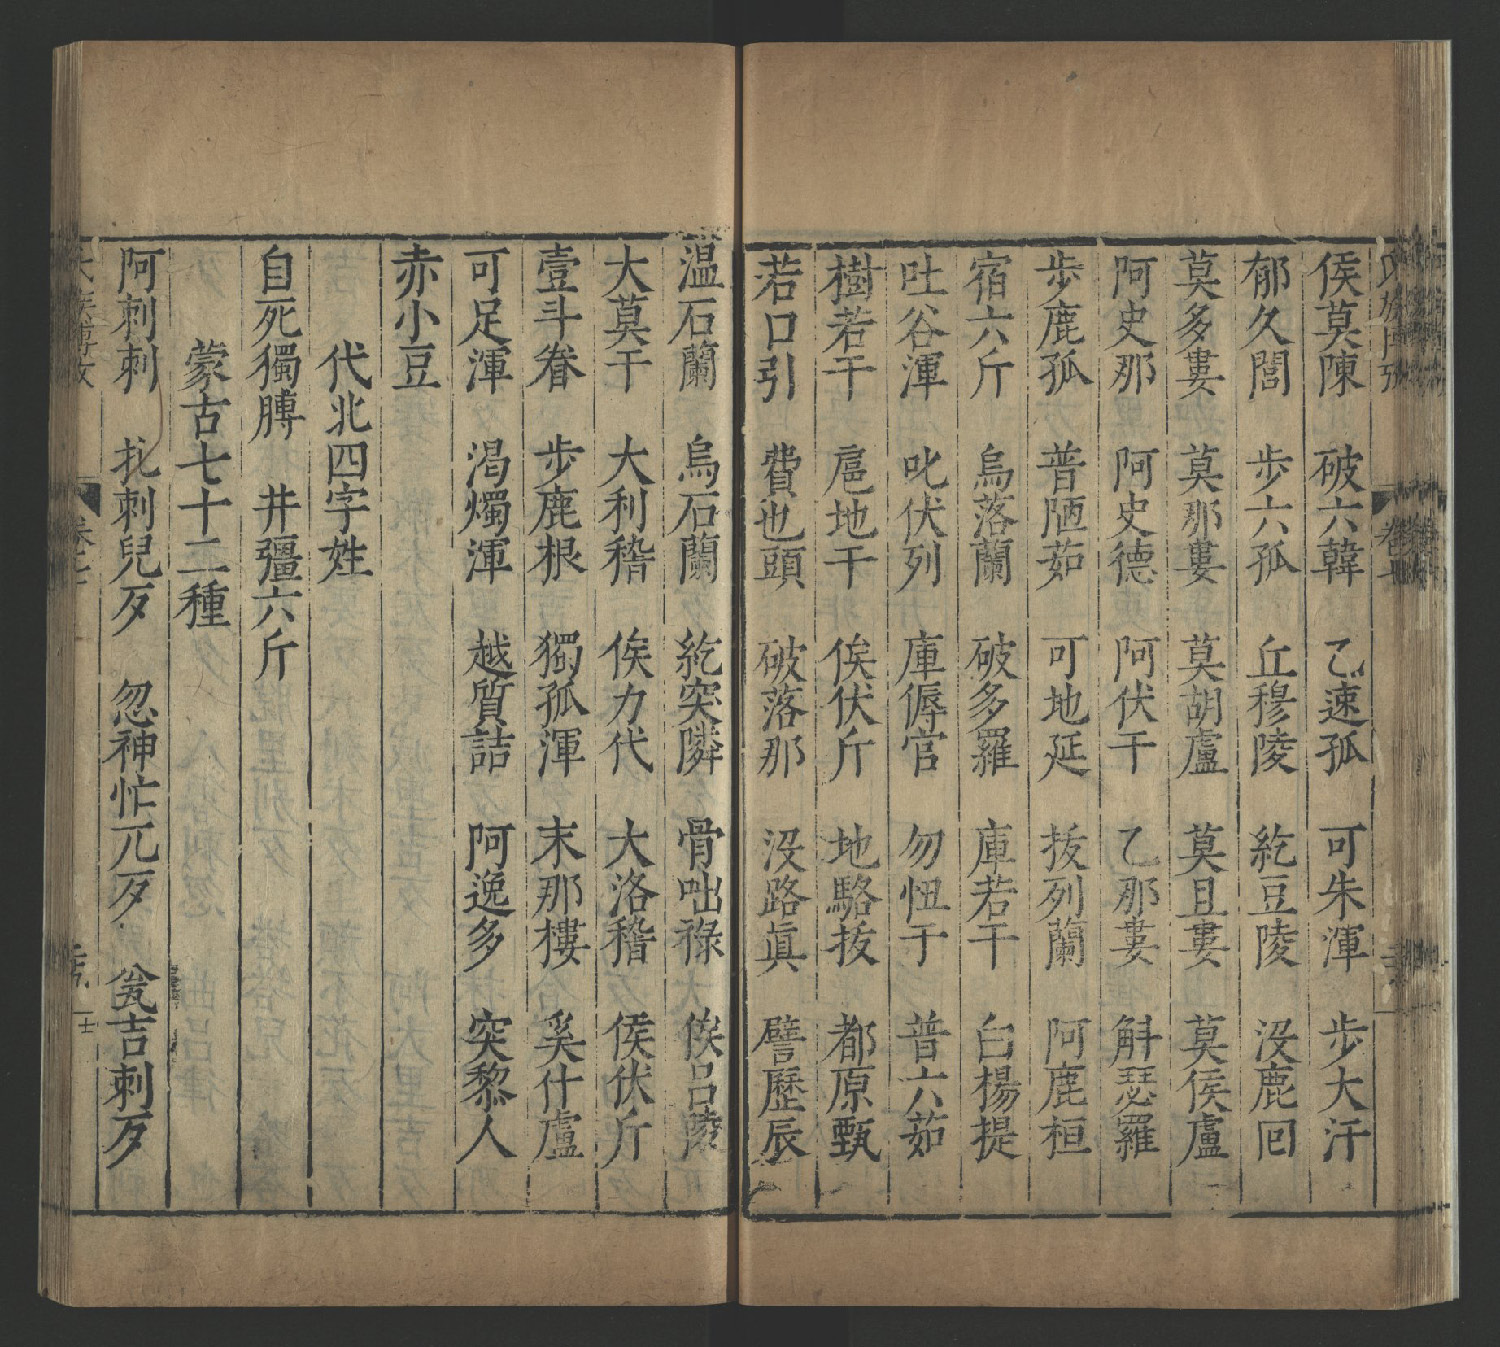 侯莫陳　破六韓　乙速孤　可朱渾　步大汗
郁久閭　步六孤　丘穆陵　紇豆陵　没鹿囘
莫多婁　莫那婁　莫胡盧　莫且婁　莫侯盧
阿史那　阿史德　阿伏干　乙那婁　斛瑟羅
步鹿孤　普陋茹　可地延　拔列蘭　阿鹿桓
宿六斤　烏落蘭　破多羅　庫若干　白楊提
吐谷渾　叱伏列　庫傉官　勿忸于　普六茹
樹若干　扈地干　俟伏斤　地駱拔　都原甄
若口引　費也頭　破落那　没路眞　譬歷辰
温石蘭　烏石蘭　紇突隣　骨咄祿　俟吕陵
大莫干　大利稽　俟力代　大洛稽　侯伏斤
壹斗眷　步鹿根　獨孤渾　末那樓　奚什盧
可足渾　渴燭渾　越質詰　阿逸多　突黎人
赤小豆
代北四字姓
自死獨膊　井彊六斤
蒙古七十二種
阿刺刺　扎刺兒歹　忽神忙兀歹　瓮吉刺歹